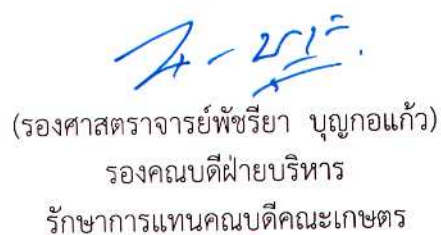 (รองศาสตราจารย์พัชรียา บุญกอแก้ว)
รองคณบดีฝ่ายบริหาร
รักษาการแทนคณบดีคณะเกษตร